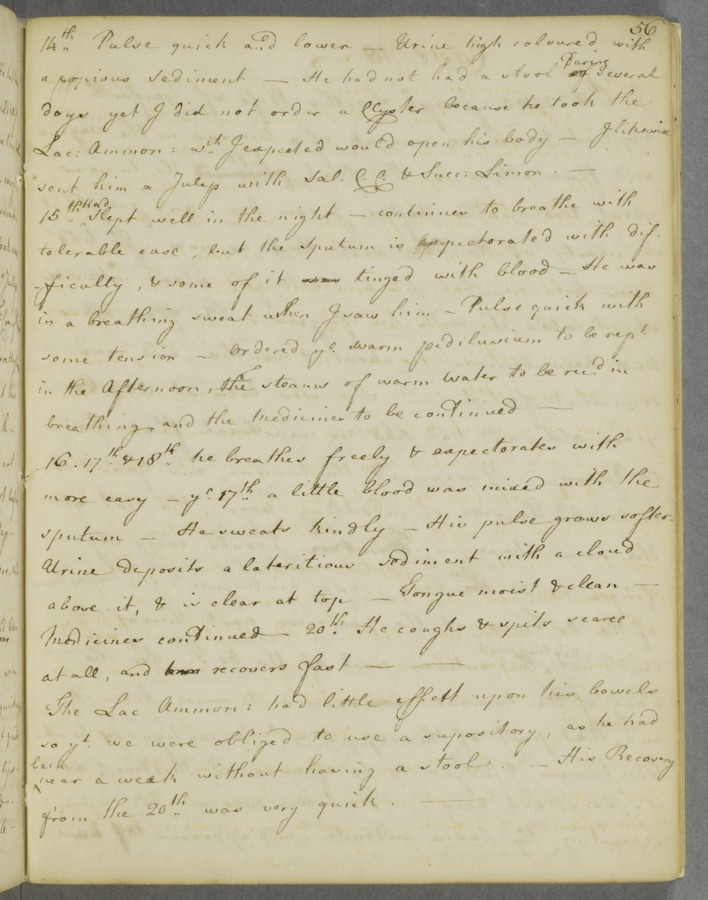 56
14th Pulse quick and lower — Urine high coloured with
a copious sediment — He had not had a stool During several
days yet I did not order a Clyster because he took the
Lac: Ammon: wch I expected would open his body — I likewise
sent him a Julep with Sal. C.C. & Succ: Limon. —
15th Had Slept well in the night — continues to breathe with
tolerable ease, but the sputum is expectorated with dif-
ficulty, & some of it tinged with blood — He was
in a breathing sweat when I saw him — Pulse quick with
some tension — Ordered ye warm pediluvium to be rept
in the Afternoon, the steams of warm water to be recd in
breathing, and the Medicines to be continued —
16. 17th & 18th he breathes freely & expectorates with
more easy — ye 17th a little blood was mixed with the
sputum — He sweats kindly — His pulse grows softer.
Urine deposits a lateritious sediment with a cloud
above it, & is clear at top — Tongue moist & clean —
Medicines continued — 20th He coughs & spits scarce
at all, and recovers fast — —
The Lac Ammon: had little effect upon his bowels
so yt we were obliged to use a supository, as he had
been near a week without having a stool. — His Recovery
from the 20th was very quick. —